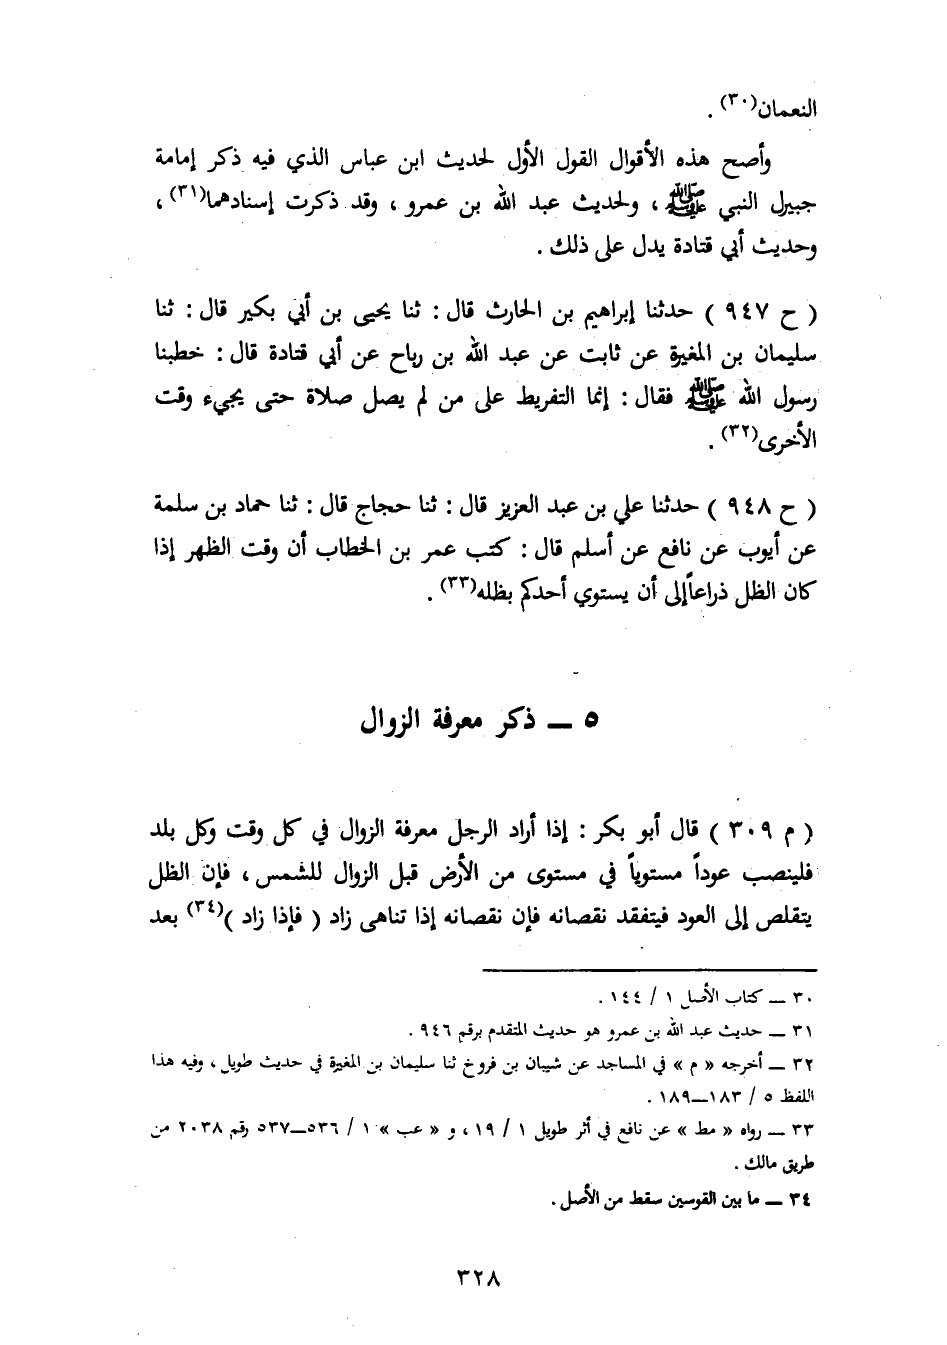 النعمان(٣٠) .
وأصح هذه الأقوال القول الأول لحديث ابن عباس الذي فيه ذكر إمامة
جبيرل النبي ﷺ ، ولحديث عبد الله بن عمرو ، وقد ذكرت إسنادهما(٣١) ،
وحديث أبي قتادة يدل على ذلك .
( ح ٩٤٧ ) حدثنا إبراهيم بن الحارث قال : ثنا يحيى بن أبي بكير قال : ثنا
سليمان بن المغيرة عن ثابت عن عبد الله بن رباح عن أبي قتادة قال : خطبنا
رسول الله ﷺ فقال : إنما التفريط على من لم يصل صلاة حتى يجيء وقت
الأخرى(٣٢) .
( ح ٩٤٨ ) حدثنا علي بن عبد العزيز قال : ثنا حجاج قال : ثنا حماد بن سلمة
عن أيوب عن نافع عن أسلم قال : كتب عمر بن الخطاب أن وقت الظهر إذا
كان الظل ذراعاً إلى أن يستوي أحدكم بظله(٣٣) .
٥ ـ ذكر معرفة الزوال
( م ٣٠٩ ) قال أبو بكر : إذا أراد الرجل معرفة الزوال في كل وقت وكل بلد
فلينصب عوداً مستوياً في مستوى من الأرض قبل الزوال للشمس ، فإن الظل
يتقلص إلى العود فيتفقد نقصانه فإن نقصانه إذا تناهى زاد ( فإذا زاد )(٣٤) بعد
٣٠ ـ كتاب الأصل ١ / ١٤٤ .
٣١ ـ حديث عبد الله بن عمرو هو حديث المتقدم برقم ٩٤٦ .
٣٢ ـ أخرجه « م » في المساجد عن شيبان بن فروخ ثنا سليمان بن المغيرة في حديث طويل ، وفيه هذا
اللفظ ٥ / ١٨٣ـ١٨٩ .
٣٣ ـ رواه « مط » عن نافع في أثر طويل ١ / ١٩ ، و « عب » ١ / ٥٣٦ـ٥٣٧ رقم ٢٠٣٨ من
طريق مالك .
٣٤ ـ ما بين القوسين سقط من الأصل .
٣٢٨